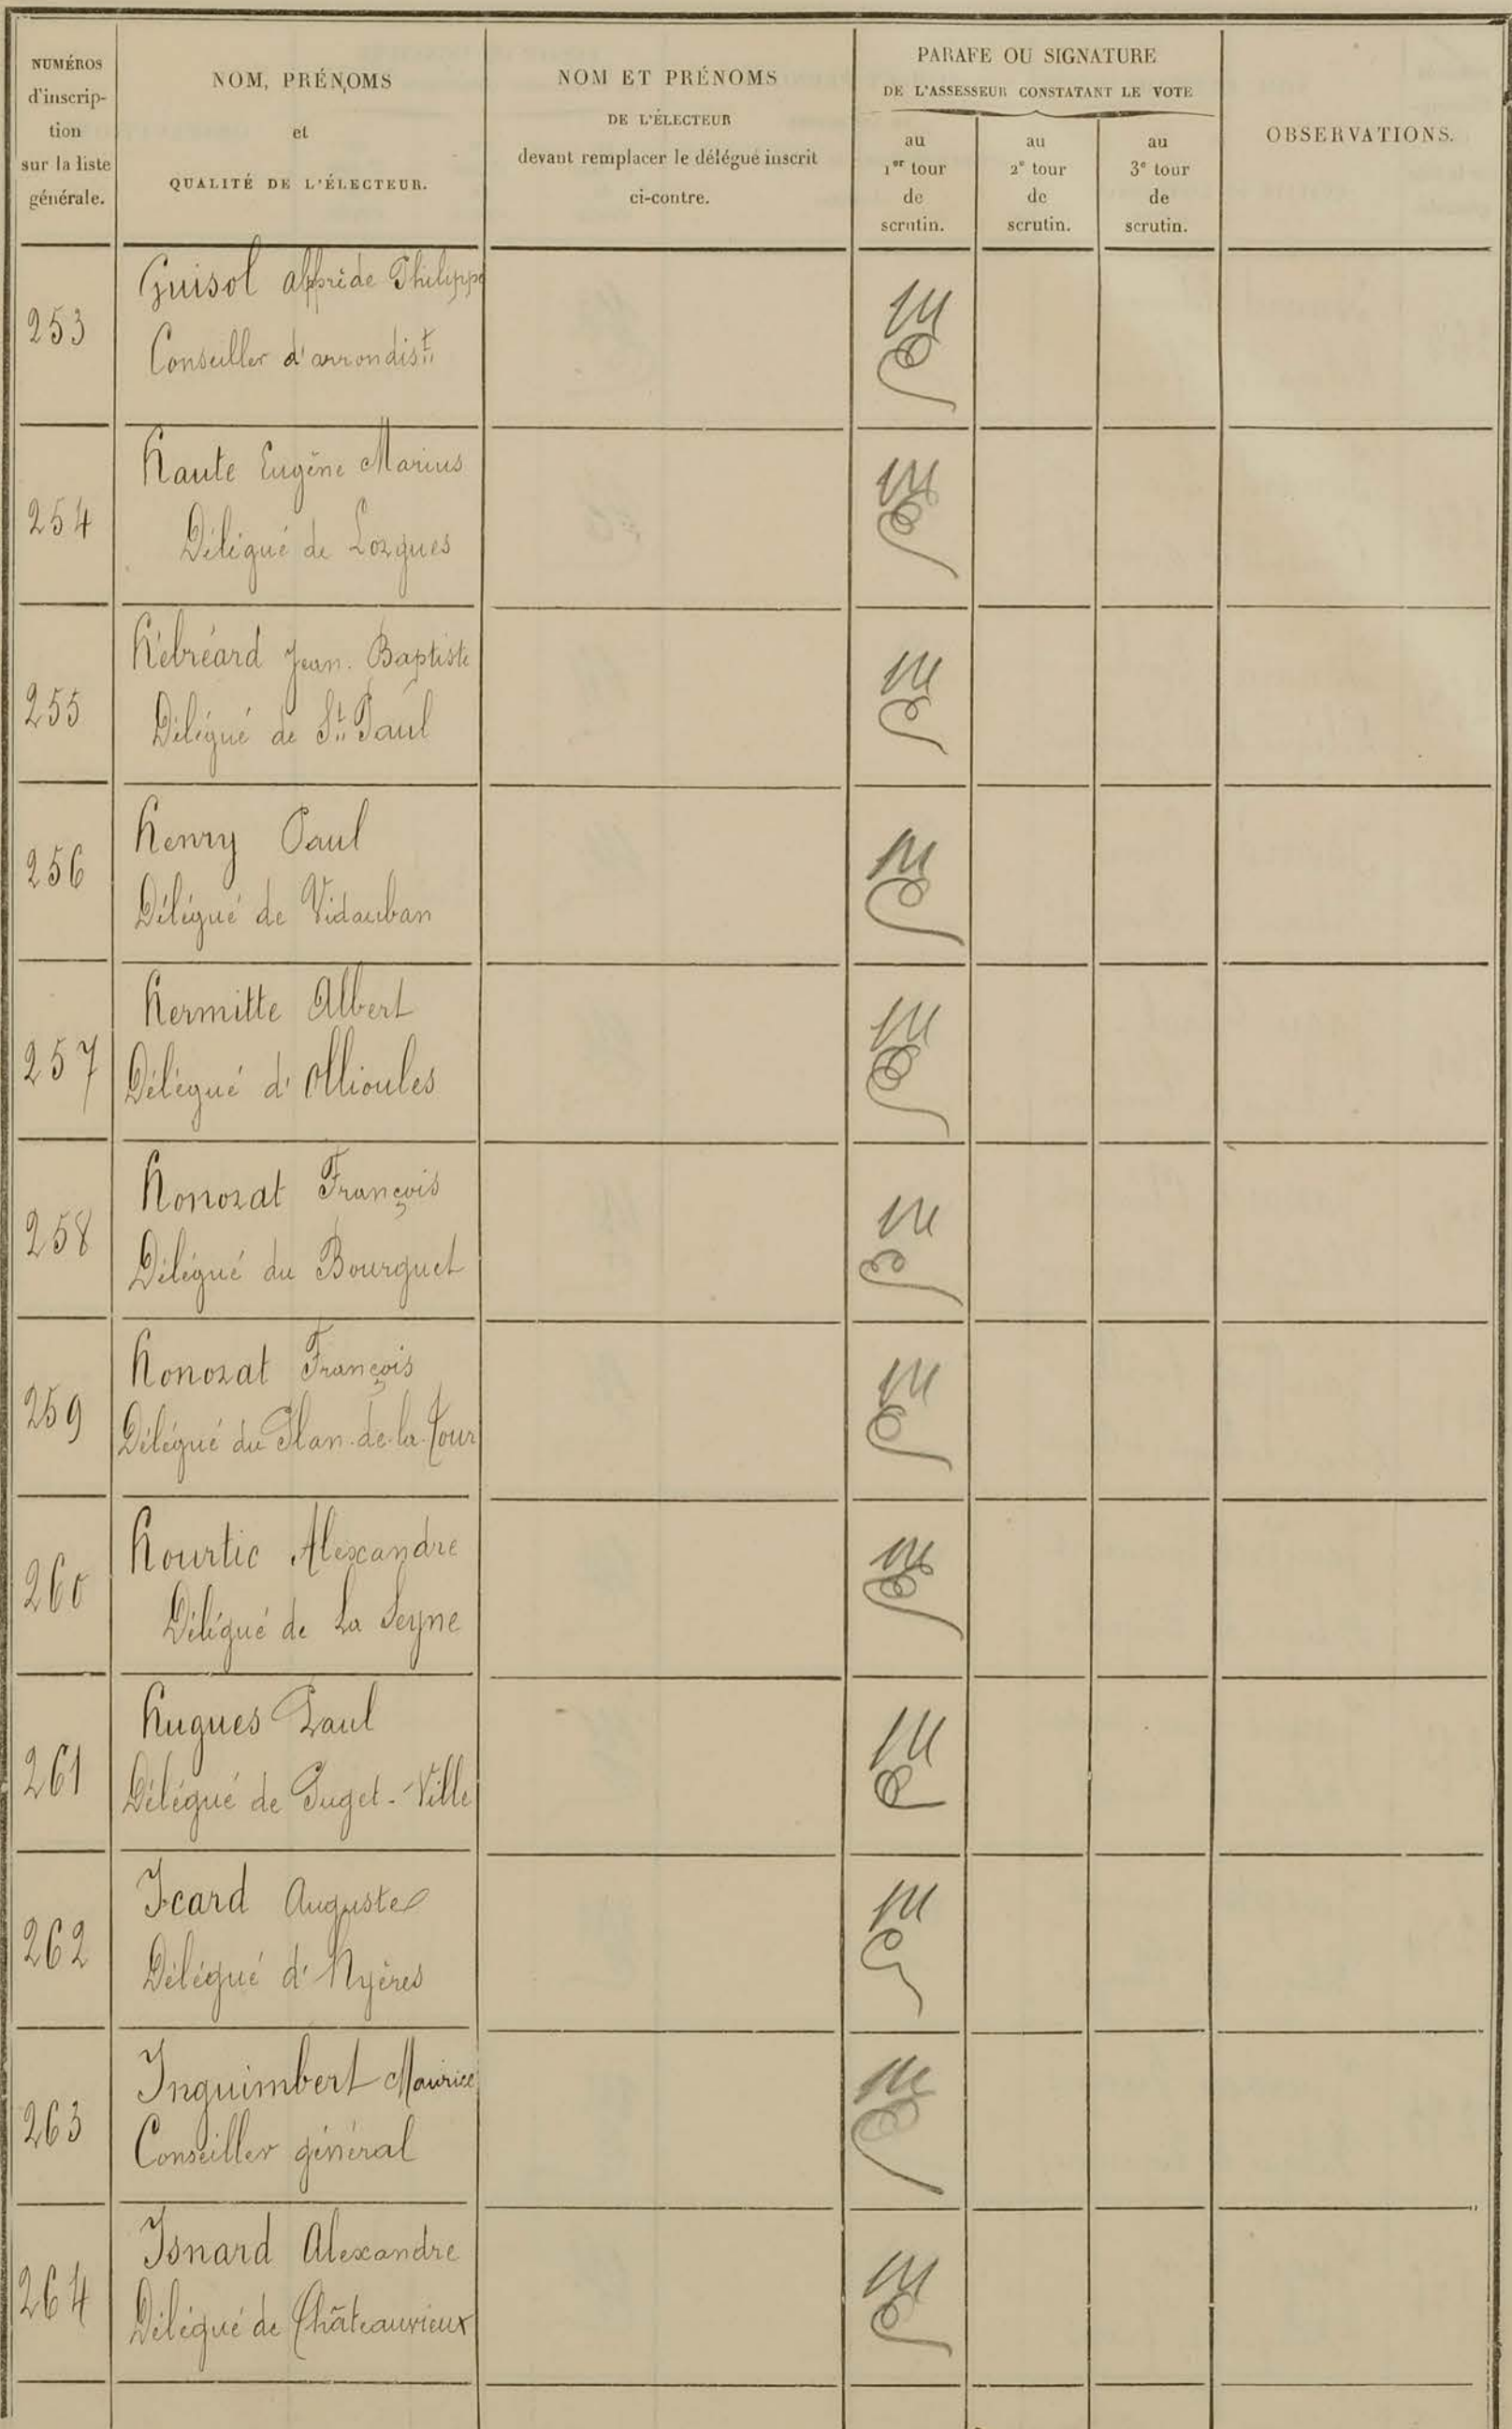 NUMÉROS
d'inscrip-
tion
sur la liste
générale.
NOM, PRÉNOMS
et
QUALITÉ DE L'ÉLECTEUR.
NOM ET PRÉNOMS
DE L'ÉLECTEUR
devant remplacer le délégué inscrit
ci-contre.
PARAFE OU SIGNATURE
DE L'ASSESSEUR CONSTATANT LE VOTE
au
1er tour
de
scrutin.
au
2e tour
de
scrutin.
au
3e tour
de
scrutin.
OBSERVATIONS.
253
Guisol Philippe
Conseiller d'arrondist
254
Haute Eugène Marius
Délégué de Lorgues
255
Hébréard Jean-Baptiste
Délégué de St Paul
256
Henry Paul
Délégué de Vidauban
257
Hermitte Albert
Délégué d'Ollioules
258
Honorat François
Délégué du Bourguet
259
Honorat François
Délégué du Plan-de-la-Tour
260
Hourtic Alexandre
Délégué de La Seyne
261
Hugues Paul
Délégué de Puget-Ville
262
Icard Auguste
Délégué d'Hyères
263
Inguimbert Maurice
Conseiller général
264
Isnard Alexandre
Délégué de Châteauvieux